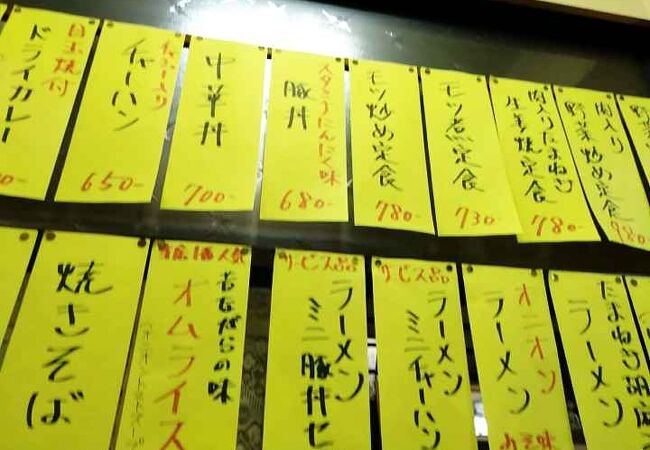 目玉焼付
ドライカレー
チャーシュー入り
チャーハン
650-
中華丼
700-
スタミナにんにく味
豚丼
680-
モツ炒め定食
780-
モツ煮定食
730-
肉入りたまねぎ
生姜焼定食
780-
肉入り
野菜炒め定食
980-
野菜
焼きそば
昔ながらの味
オムライス
サービス品
ラーメン
ミニ豚丼セ
サービス品
ラーメン
ミニチャーハン
オニオン
ラーメン
たまねぎ
ラーメン